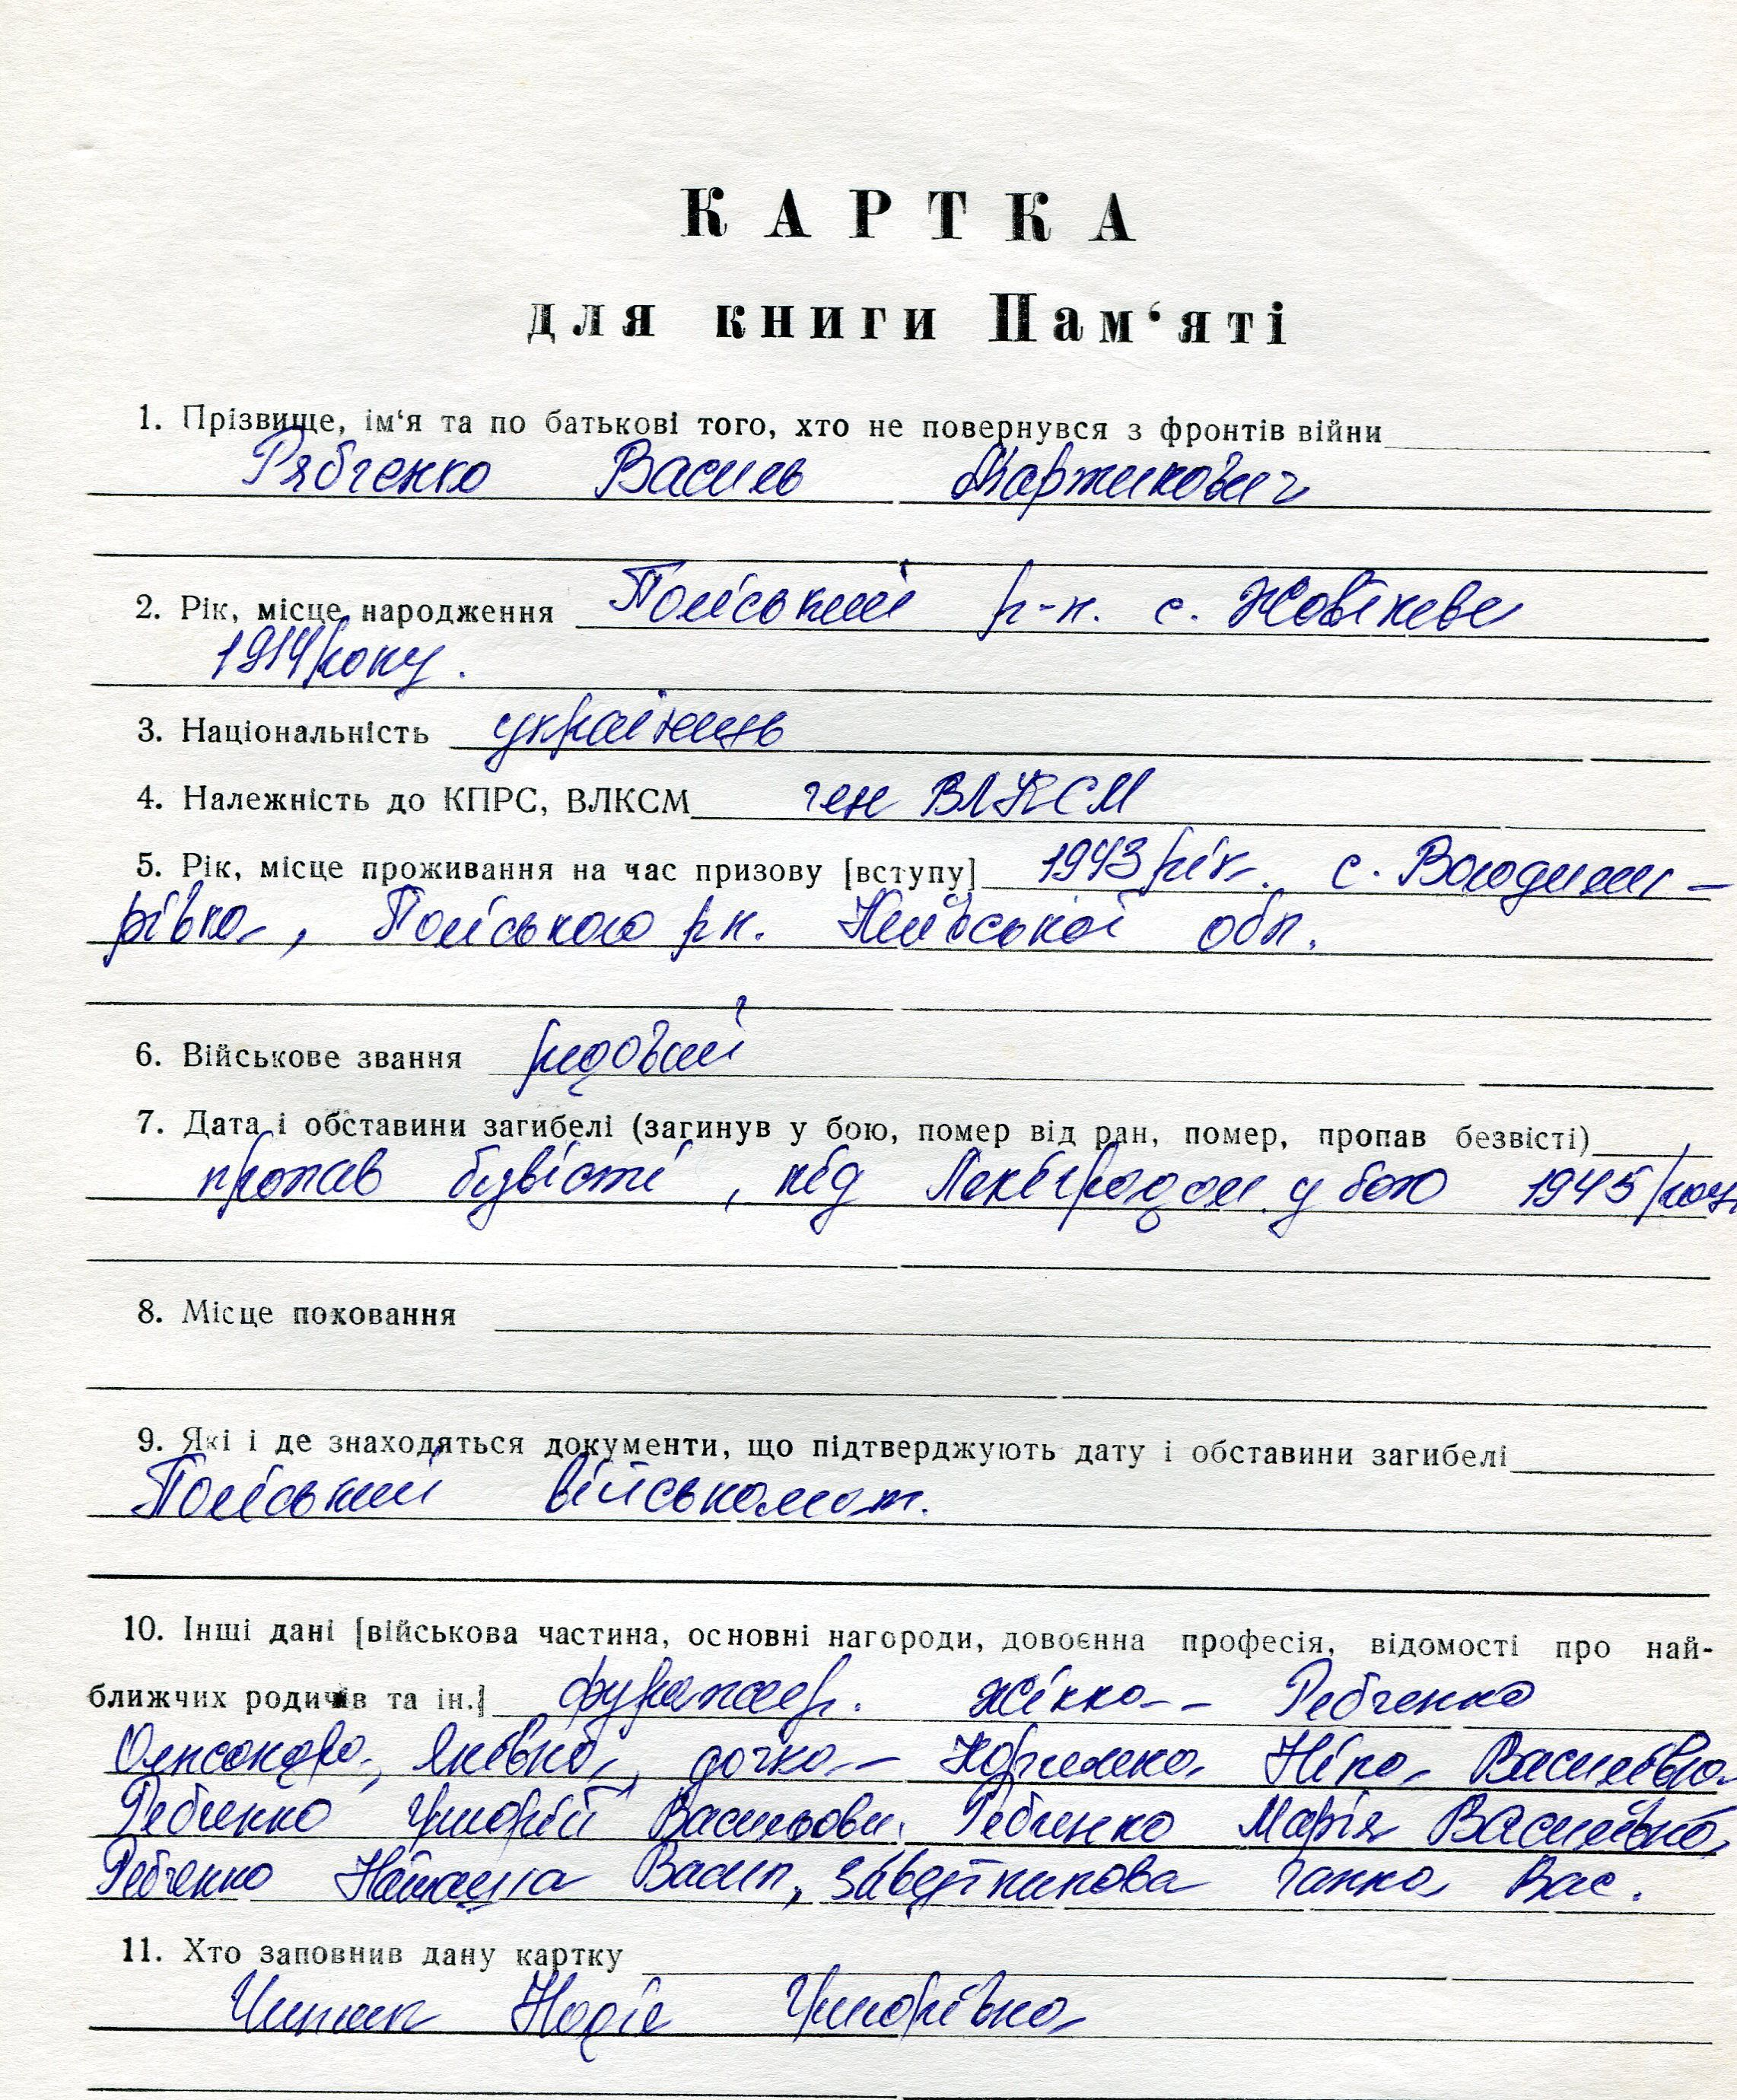 КАРТКА
для книги Пам‘яті
1. Прізвище, ім‘я та по батькові того, хто не повернувся з фронтів війни
Рябченко Василь Мартинович
2. Рік, місце народження Поліський р-н. с.
1914 року.
3. Національність українець
4. Належність до КПРС, ВЛКСМ член ВЛКСМ
5. Рік, місце проживання на час призову [вступу] 1943 рік. с. Володими-
рівка, Поліського р н. Київської обл.
6. Військове звання рядовий
7. Дата і обставини загибелі (загинув у бою, помер від ран, помер, пропав безвісті)
пропав безвісті, під у бою 1945 року
8. Місце поховання
9. Які і де знаходяться документи, що підтверджують дату і обставини загибелі
Поліський військомат.
10. Інші дані [військова частина, основні нагороди, довоєнна професія, відомості про най-
ближчих родичів та ін.] фуражир. жінка - Рябченко
Олександра Яківна, дочка - Ніна Василівна
Рябченко Васильови. Рябченко Марія Василівна,
Рябченко Наташа Васил, Ганна Вас.
11. Хто заповнив дану картку
Надія